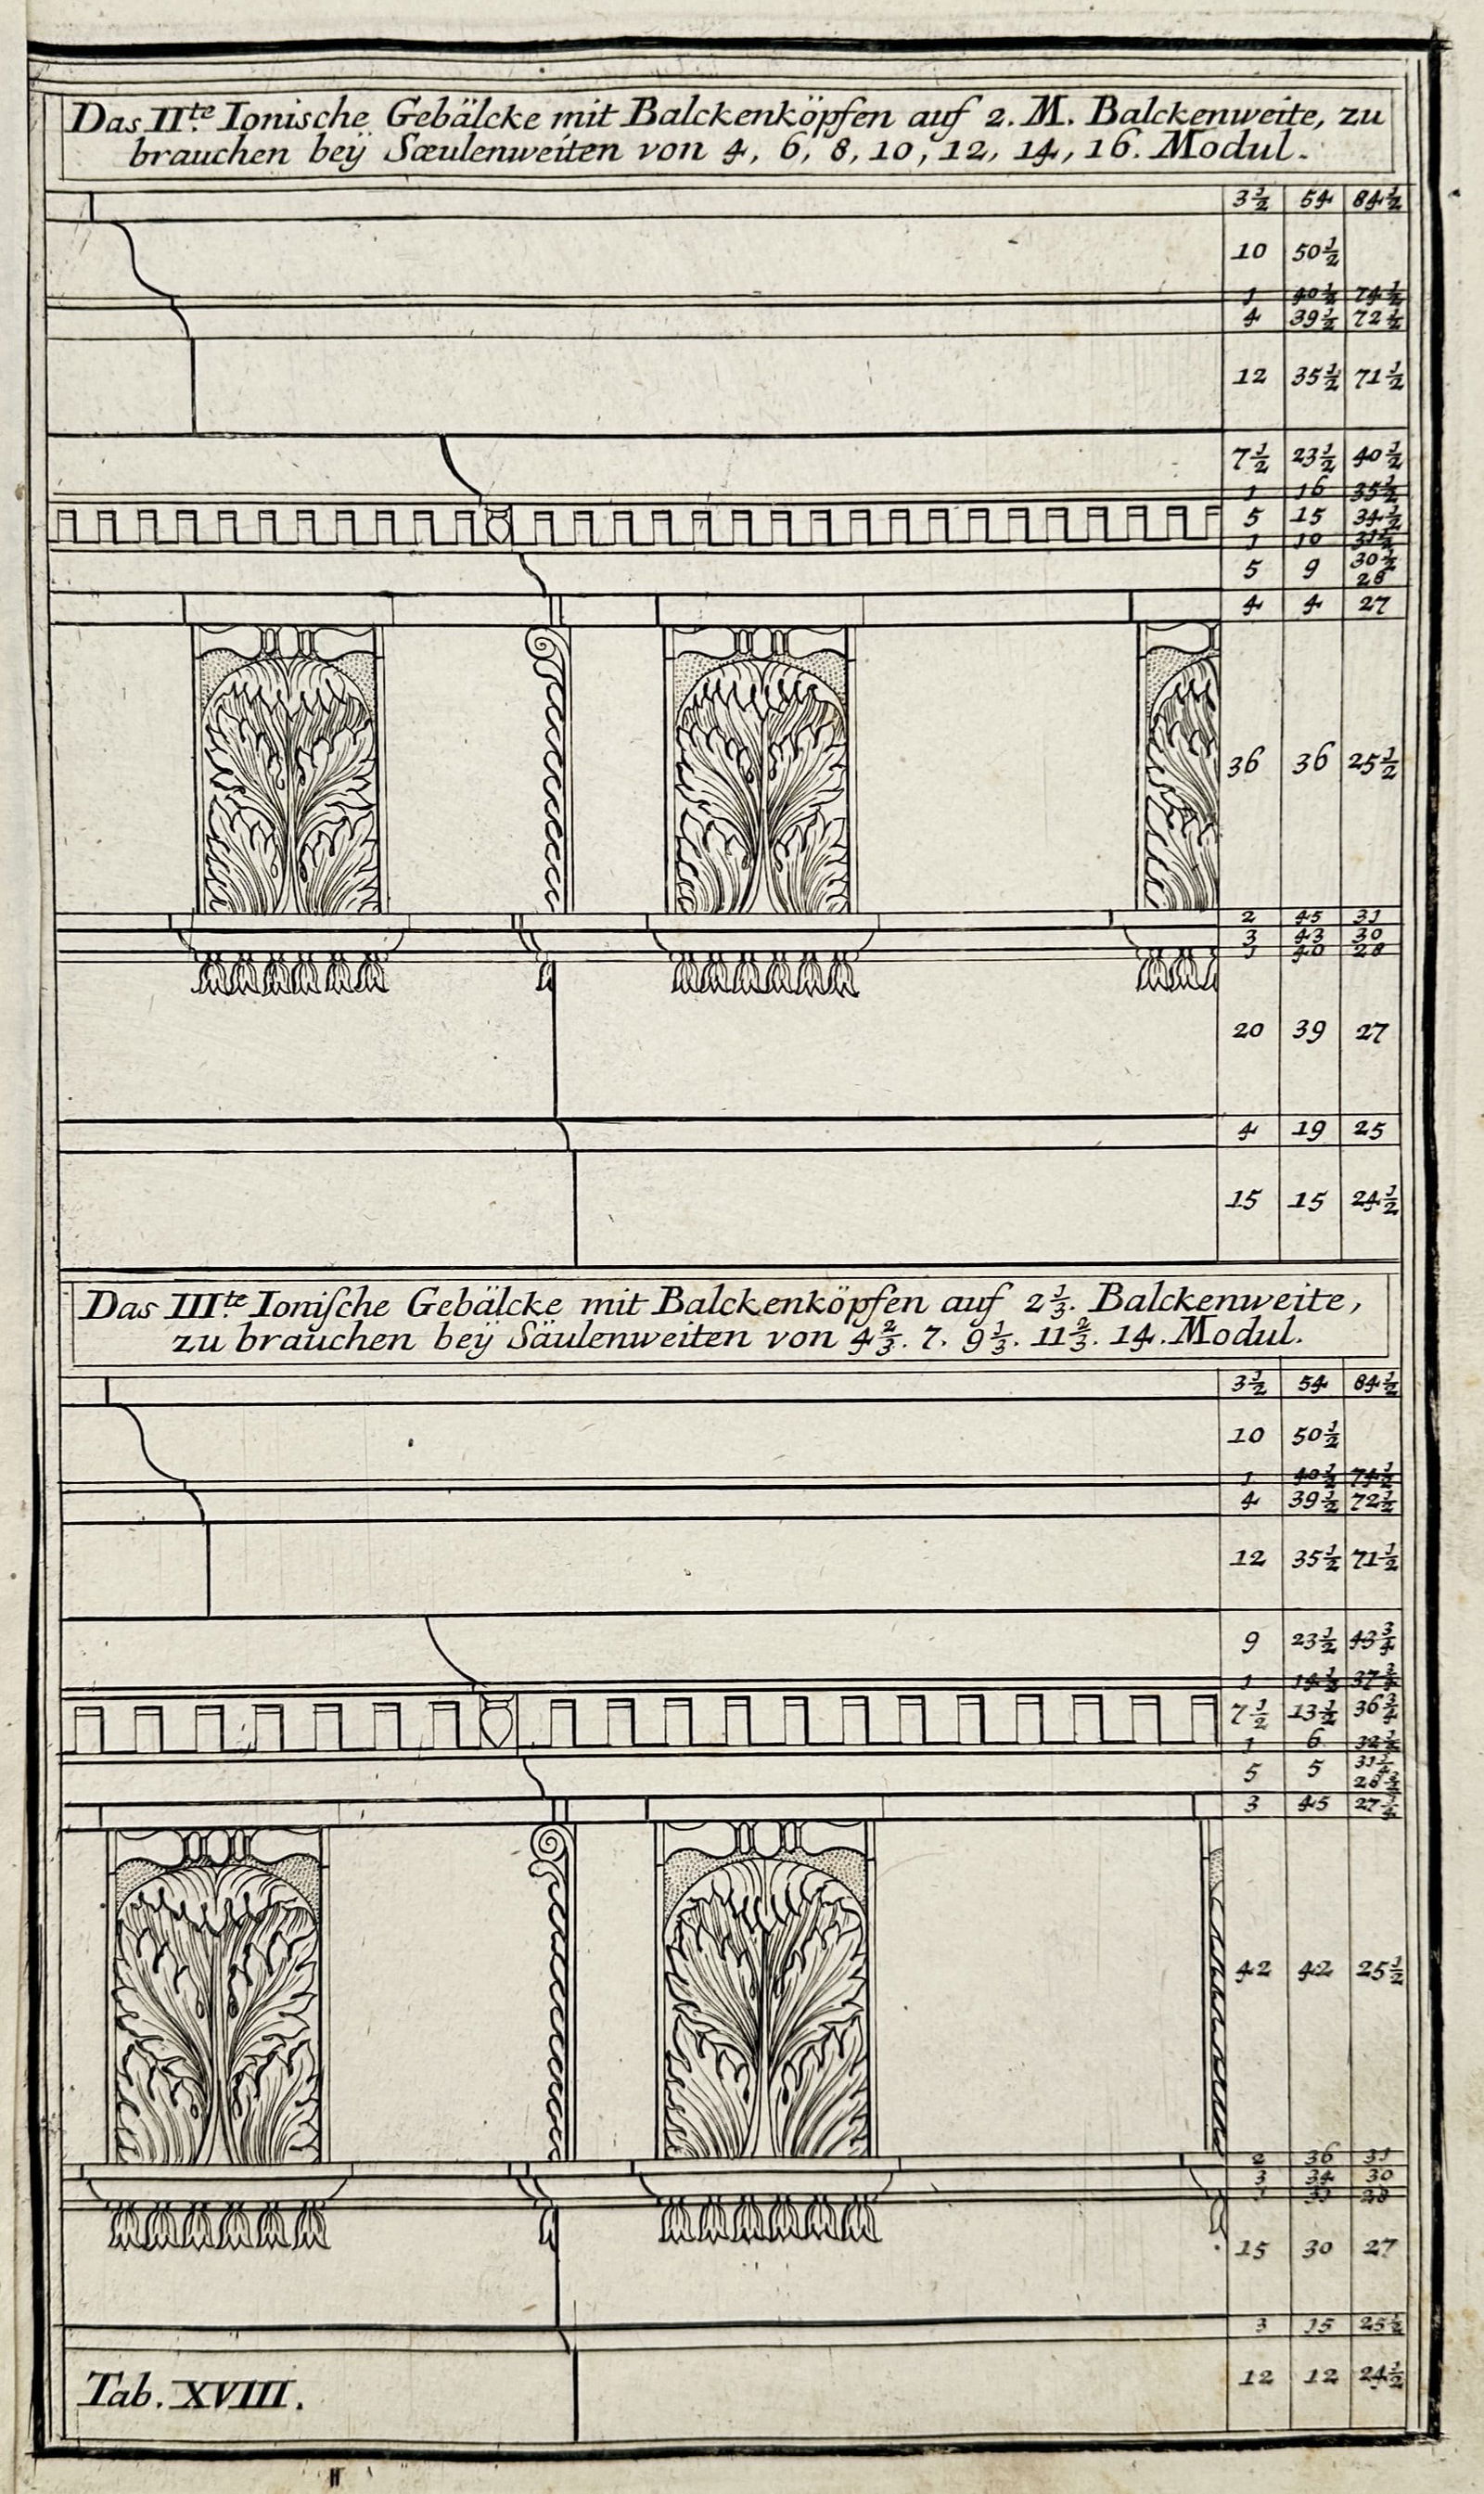 Das II.te Ionische Gebälcke mit Balckenköpfen auf 2. M. Balckenweite, zu
brauchen beÿ Sœulenweiten von 4, 6, 8, 10, 12, 14, 16. Modul.
3½ 54 84½
10 50½
1 40½ 74½
4 39½ 72½
12 35½ 71½
7½ 23½ 40½
1 16 35½
5 15 34½
1 10 31½
5 9 30½
28
4 4 27
36 36 25½
2 45 31
3 43 30
1 40 28
20 39 27
4 19 25
15 15 24½
Das III.te Ioniſche Gebälcke mit Balckenköpfen auf 2⅓. Balckenweite,
zu brauchen beÿ Säulenweiten von 4⅔. 7. 9⅓. 11⅔. 14. Modul.
3½ 54 84½
10 50½
1 40½ 74½
4 39½ 72½
12 35½ 71½
9 23½ 43¾
1 14½ 37¾
7½ 13½ 36¾
1 6
5 5 31¾
28¾
3 45 27¼
42 42 25½
2 36 31
3 34 30
1 31 28
15 30 27
3 15 25½
12 12 24½
Tab. XVIII.